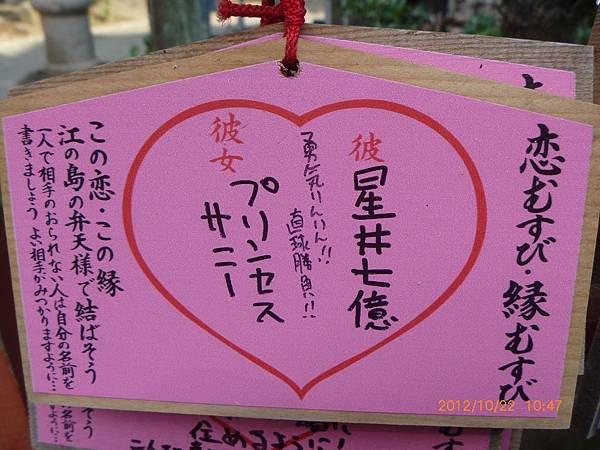 恋むすび・縁むすび
彼
星井七億
勇気りんりん!!
直球勝負!!
彼女
プリンセス
サニー
この恋・この縁
江の島の弁天様で結ばそう
一人で相手のおられない人は自分の名前を
書きましょう よい相手がみつかりますように…
2012/10/22 10:47